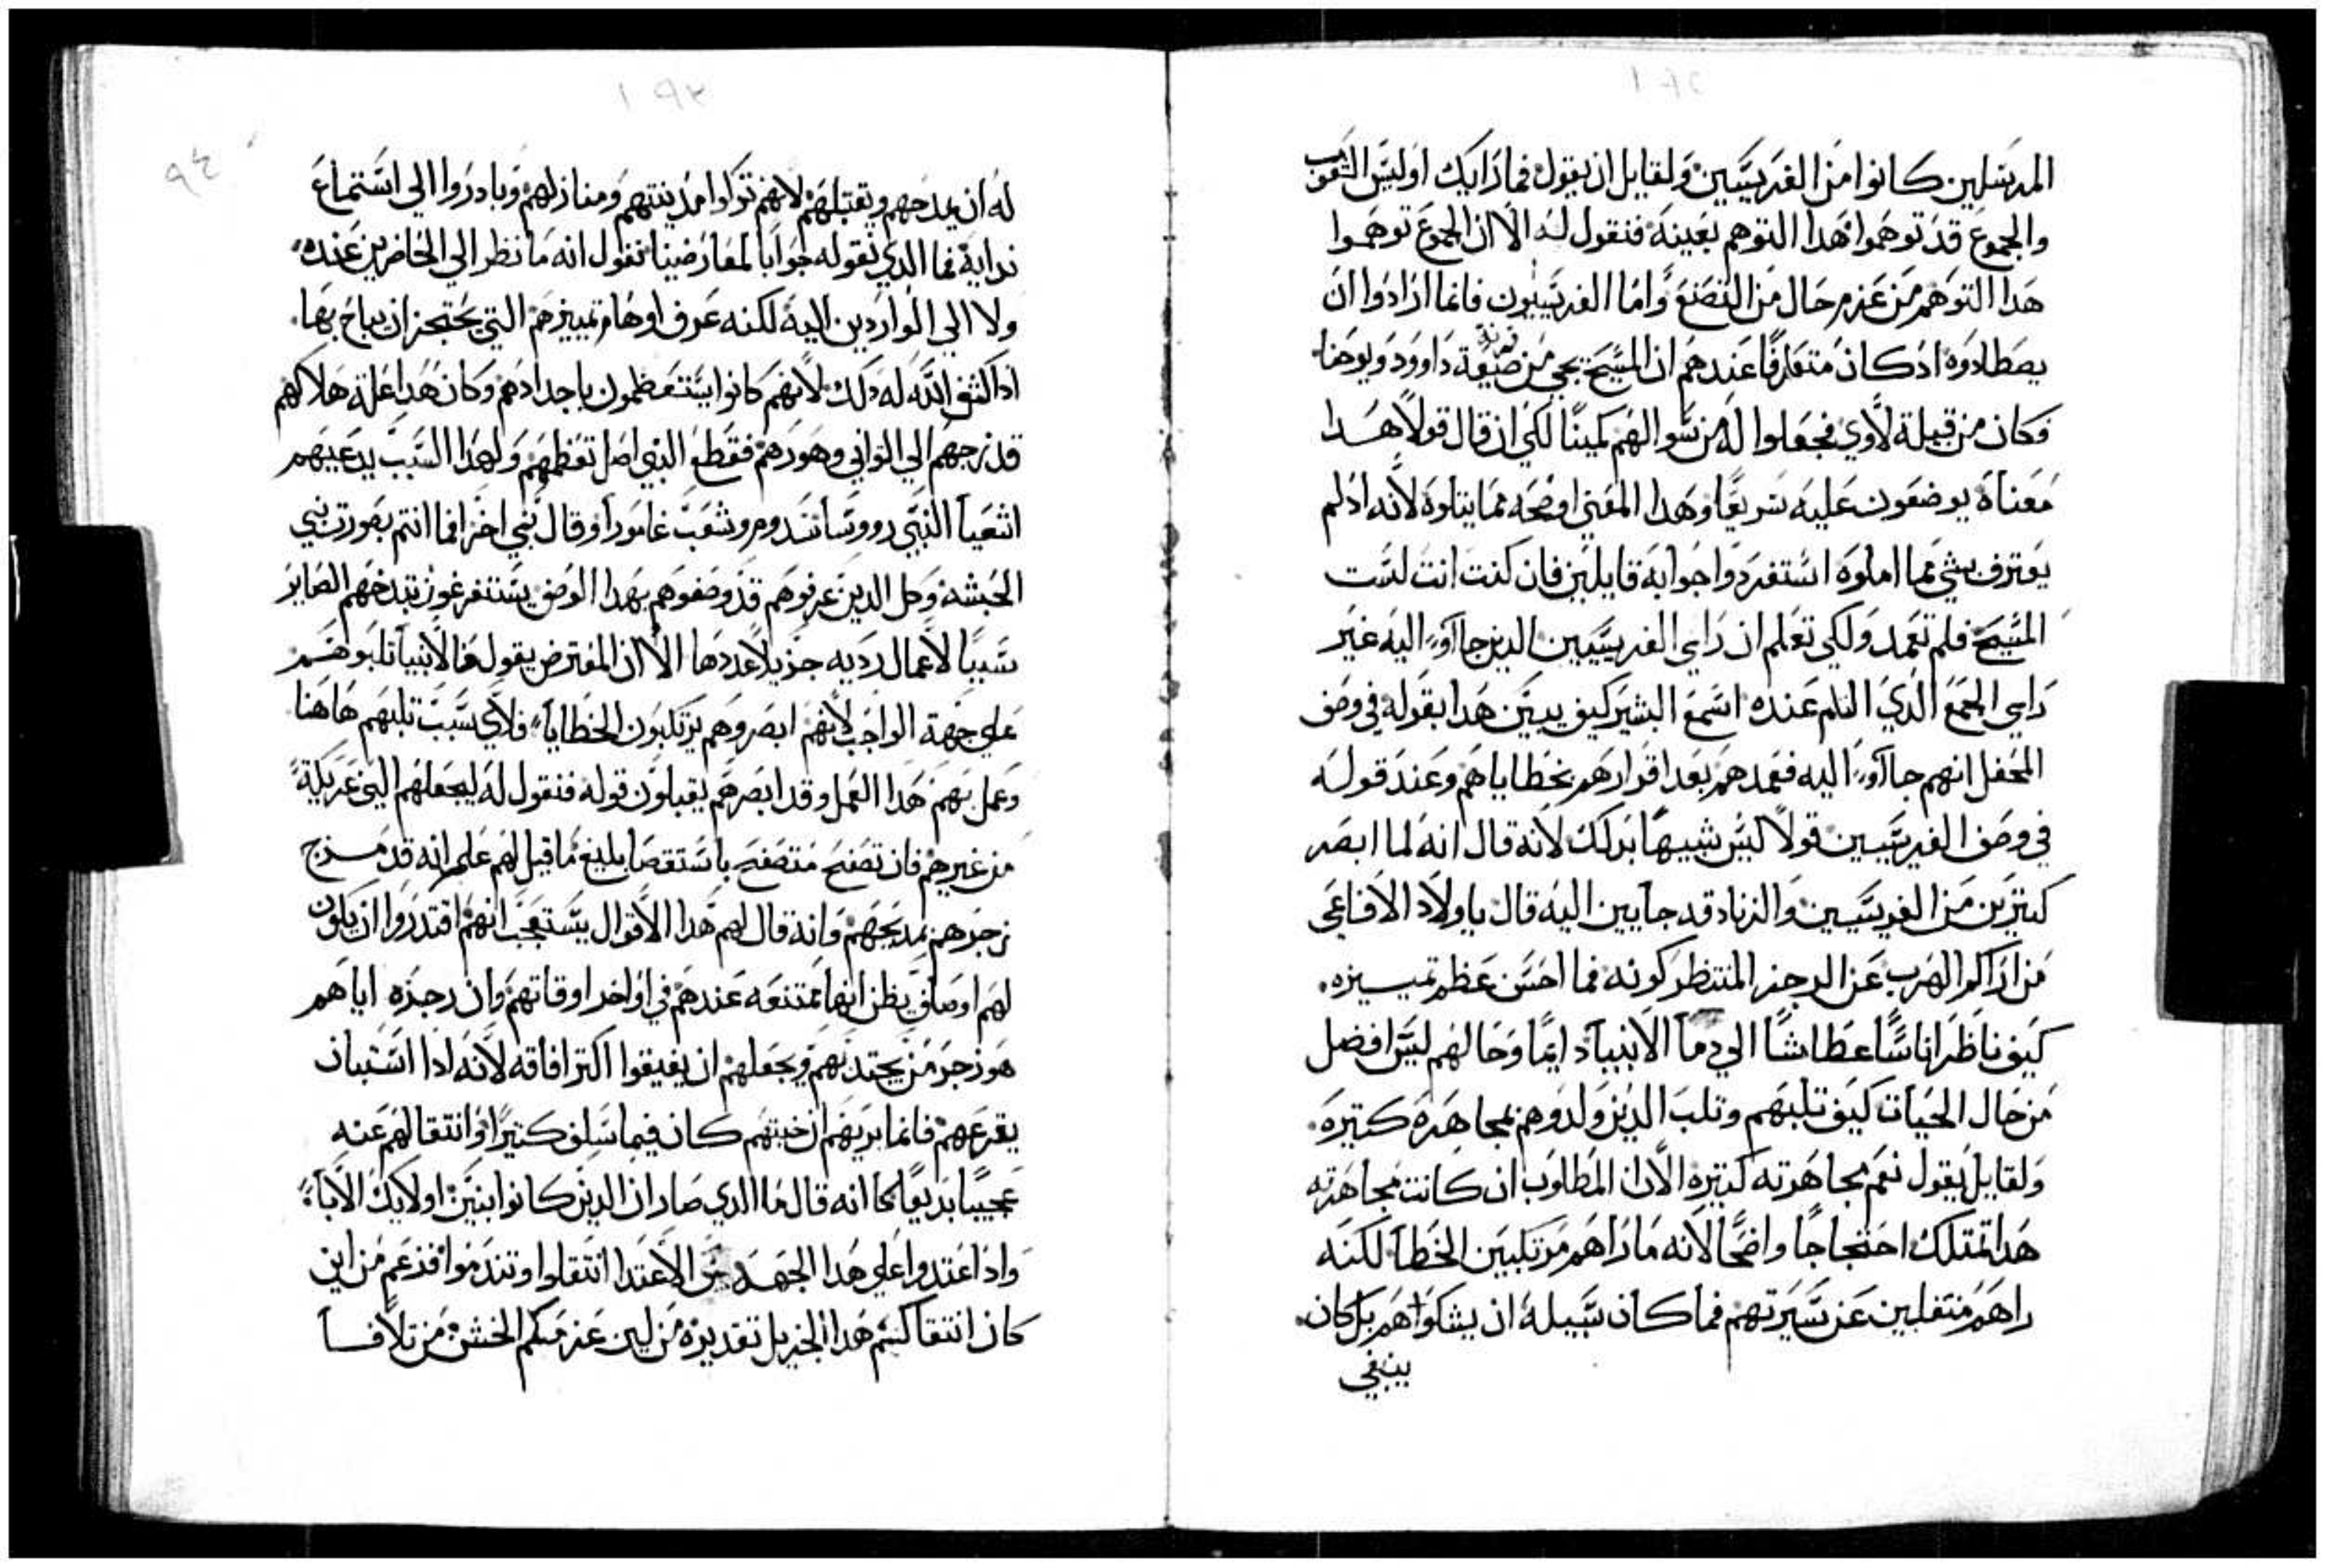 ١٩٢
المرسلين كانوا من الفريسيين ولقايل ان يقول فما رايك اوليس الشعوب
والجموع قد توهموا هدا التوهم بعينه فنقول له الا ان الجموع توهموا
هدا التوهم من عزم خال من التصنع واما الفريسيون فانما ارادوا ان
يصطادوه اد كان متعارفا عندهم ان المسيح يجي من ضيعة داوود ويوحنا
فكان من قبيلة لاوي فجعلوا له من سوالهم كمينا لكي ان قال قولا هدا
معناه يوضعون عليه سريعا وهدا المعني اوضحه مما يتلوه لانه اد لم
يعترف بشي مما املوه استفردوا جوابه قايلين فان كنت انت لست
المسيح فلم تعمد ولكي تعلم ان راي الفريسيين الدين جااو اليه غير
راي الجمع الدي التام عنده اسمع البشير كيف يبين هدا بقوله في وصف
المحفل انهم جااو اليه فعمدهم بعد اقرارهم بخطاياهم وعند قوله
في وصف الفريسيين قولا ليس شبيها بدلك لانه قال انه لما ابصر
كتيرين من الفريسيين والزنادقه جايين اليه قال ياولاد الافاعي
من اراكم الهرب عن الرجز المنتظر كونه فما احسن عظم تمييزه.
كيف ناظر اناسا عطاشا الي دما الانبيا دايما وحالهم ليس افضل
من حال الحيات كيف تلبهم وتلب الدين ولدوهم بمجاهره كتيره.
ولقايل يقول نعم مجاهرته كتيره الا ان المطلوب ان كانت مجاهرته
هدا تمتلك احتجاجا واضحا لانه ما راهم مرتكبين الخطا لكنه
راهم منتقلين عن سيرتهم فما كان سبيله ان يشكواهم بل كان
ينبغي
١٩٣
٩٤
له ان يمدحهم ويقتبلهم لانهم تركوا مدينتهم ومنازلهم وبادروا الي استماع
ندايه فما الدي نقوله جوابا لمعارضينا نقول انه ما نظر الي الحاضرين عنده
ولا الي الواردين اليه لكنه عرف اوهام تمييزهم التي يحتجز ان يباح بها.
ادا كشف الله له دلك لانهم كانوا يستعظمون باجدادهم وكان هدا علة هلاكهم
قد زجهم الي التواني وهورهم فقطع الدي اصل تعظمهم ولهدا السبب يدعيهم
اشعيا النبي رووسا سدوم وشعب غامورا وقال نبي اخر اما انتم بصورت بني
الحبشه وكل الدين عرفوهم قد وصفوهم بهدا الوصف يستفرغون تبدخهم الصاير
سببا لاعمال رديه جزيلا عددها الا ان المعترض يقول فالانبيا تلبوهم
علي جهة الواجب لانهم ابصروهم يرتكبون الخطايا فلاي سبب تلبهم هاهنا
وعمل بهم هدا العمل وقد ابصرهم يقبلون قوله فنقول له ليجعلهم الين عريكة
من غيرهم فان تصفح متصفح باستقصا بليغ ما قيل لهم علم انه قد مزج
زجرهم بمديحهم فانه قال لهم هدا الاقوال يستعجب انهم اقتدروا ان يكون
لهم اوصاف يظن انها ممتنعه عندهم في اواخر اوقاتهم وان رجزه اياهم
هو زجر من يجتدبهم ويجعلهم ان يفيقوا اكتر افاقه لانه ادا استبان
يقرعهم فانما يريهم ان خبثهم كان فيما سلف كتيرا وانتقالهم عنه
عجيبا بديعا كما انه قال ما الدي صار ان الدين كانوا بنين اولايك الابا
واد اعتدوا علي هدا الجهه من الاغتدا انتقلوا وتندموا فزعم من اين
كان انتقالتم هدا الجزيل تقديره من لين عزمكم الخشن من تلافا